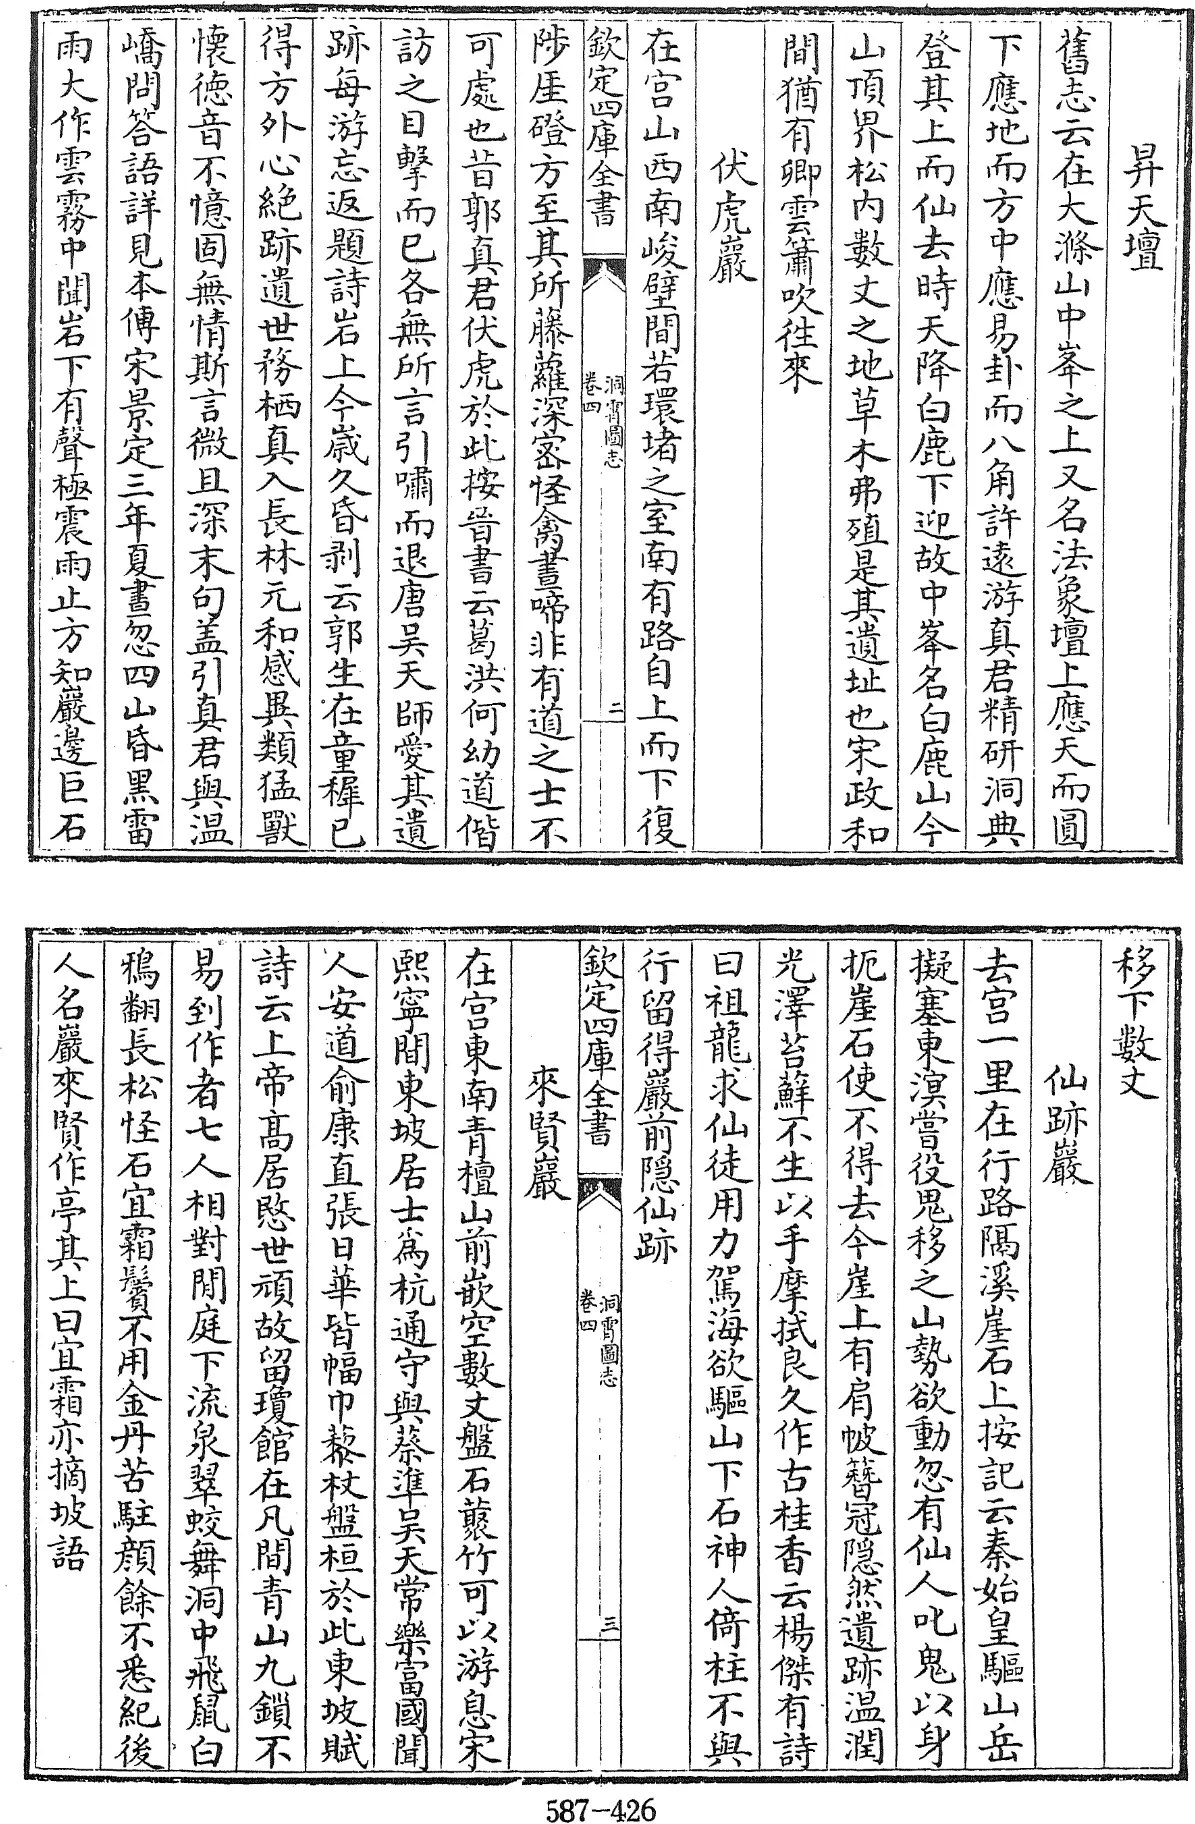 昇天壇
舊志云在大滌山中峯之上又名法象壇上應天而圓
下應地而方中應易卦而八角許逺游真君精研洞典
登其上而仙去時天降白鹿下迎故中峯名白鹿山今
山頂界松内數丈之地草木弗殖是其遺址也宋政和
間猶有卿雲簫吹徃來
伏虎巖
在宫山西南峻壁間若環堵之室南有路自上而下復
欽定四庫全書
洞霄圖志
卷四
二
陟厓磴方至其所藤蘿深宻怪禽晝啼非有道之士不
可處也昔郭真君伏虎於此按晉書云葛洪何幼道偕
訪之目擊而已各無所言引嘯而退唐吴天師愛其遺
跡每游忘返題詩岩上今嵗久昏剥云郭生在童穉已
得方外心絶跡遺世務栖真入長林元和感異類猛獸
懐徳音不憶固無情斯言微且深末句盖引真君與温
嶠問答語詳見本傳宋景定三年夏晝忽四山昏黒雷
雨大作雲霧中聞岩下有聲極震雨止方知巖邊巨石
移下數丈
仙跡巖
去宫一里在行路隔溪崖石上按記云秦始皇驅山岳
擬塞東溟嘗役鬼移之山勢欲動忽有仙人叱鬼以身
扼崖石使不得去今崖上有肩帔簪冠隠然遺跡温潤
光澤苔蘚不生以手摩拭良久作古桂香云楊傑有詩
曰祖龍求仙徒用力駕海欲驅山下石神人倚柱不與
行留得巖前隠仙跡
欽定四庫全書
洞霄圖志
卷四
三
來賢巖
在宫東南青檀山前嵌空數丈盤石藂竹可以游息宋
熙寧間東坡居士為杭通守與蔡準吴天常樂富國聞
人安道俞康直張日華皆幅巾藜杖盤桓於此東坡賦
詩云上帝髙居愍世頑故留瓊館在凡間青山九鎖不
易到作者七人相對閒庭下流泉翠蛟舞洞中飛鼠白
鴉翻長松怪石宜霜鬢不用金丹苦駐顔餘不悉紀後
人名巖來賢作亭其上曰宜霜亦摘坡語
587-426